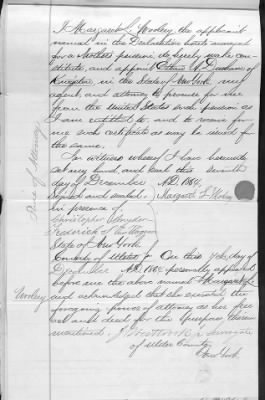 I Margaret L. Worley, the applicant
named in the Declaration hereto annexed
for a Mothers pension, do hereby make con-
stitute, and appoint W. Dunham of
Kingston, in the State of New York my
agent, and attorney to procure for me
from the United States such pension as
I am entitled to, and to receive for
me such certificate as may be issued for
the same.
In witness whereof I have hereunto
set my hand, and seal this
day of December A.D. 1864.
Signed and sealed Margaret L.
in presence of
Christopher Snyder
Frederick
State of New York
County of Ulster On this day of
December A.D. 1864 personally appeared
before me the above named Margaret
and acknowledged that she executed the
foregoing power of attorney as her free
will and deed for the purposes therein
mentioned.
of Ulster County
New York
Power of Attorney
Worley